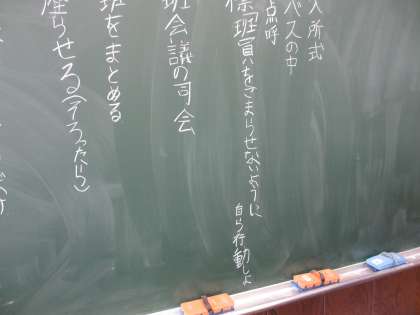 入所式
バスの中
点呼
班員をこまらせないように
自ら行動しよ
班会議の司会
班をまとめる
座らせる(そろったら)